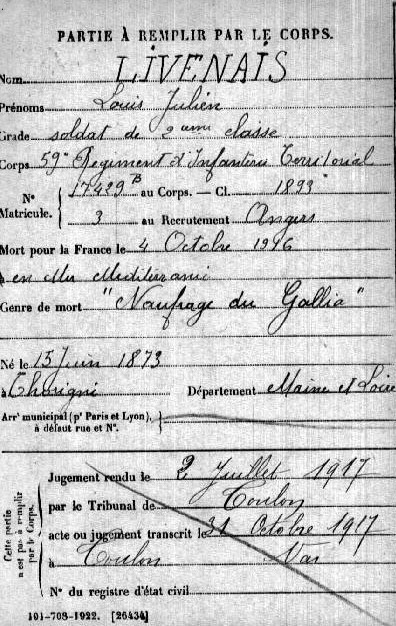 PARTIE À REMPLIR PAR LE CORPS.
Nom LIVENAIS
Prénoms Louis Julien
Grade soldat de 2eme classe
Corps 59e Regiment d'Infanterie Territorial
N° Matricule. { 17429 B au Corps. — Cl. 1893
3 au Recrutement Angers
Mort pour la France le 4 Octobre 1916
à en Mer Mediterranée
Genre de mort "Naufrage du Gallia"
Né le 15 Juin 1873
à Chorigné Département Maine et Loire
Arrt municipal (pr Paris et Lyon), à défaut rue et N°. {
Cette partie n'est pas à remplir par le Corps.
Jugement rendu le 2 Juillet 1917
par le Tribunal de Toulon
acte ou jugement transcrit le 31 Octobre 1917
à Toulon Var
N° du registre d'état civil
101-708-1922. [26434]